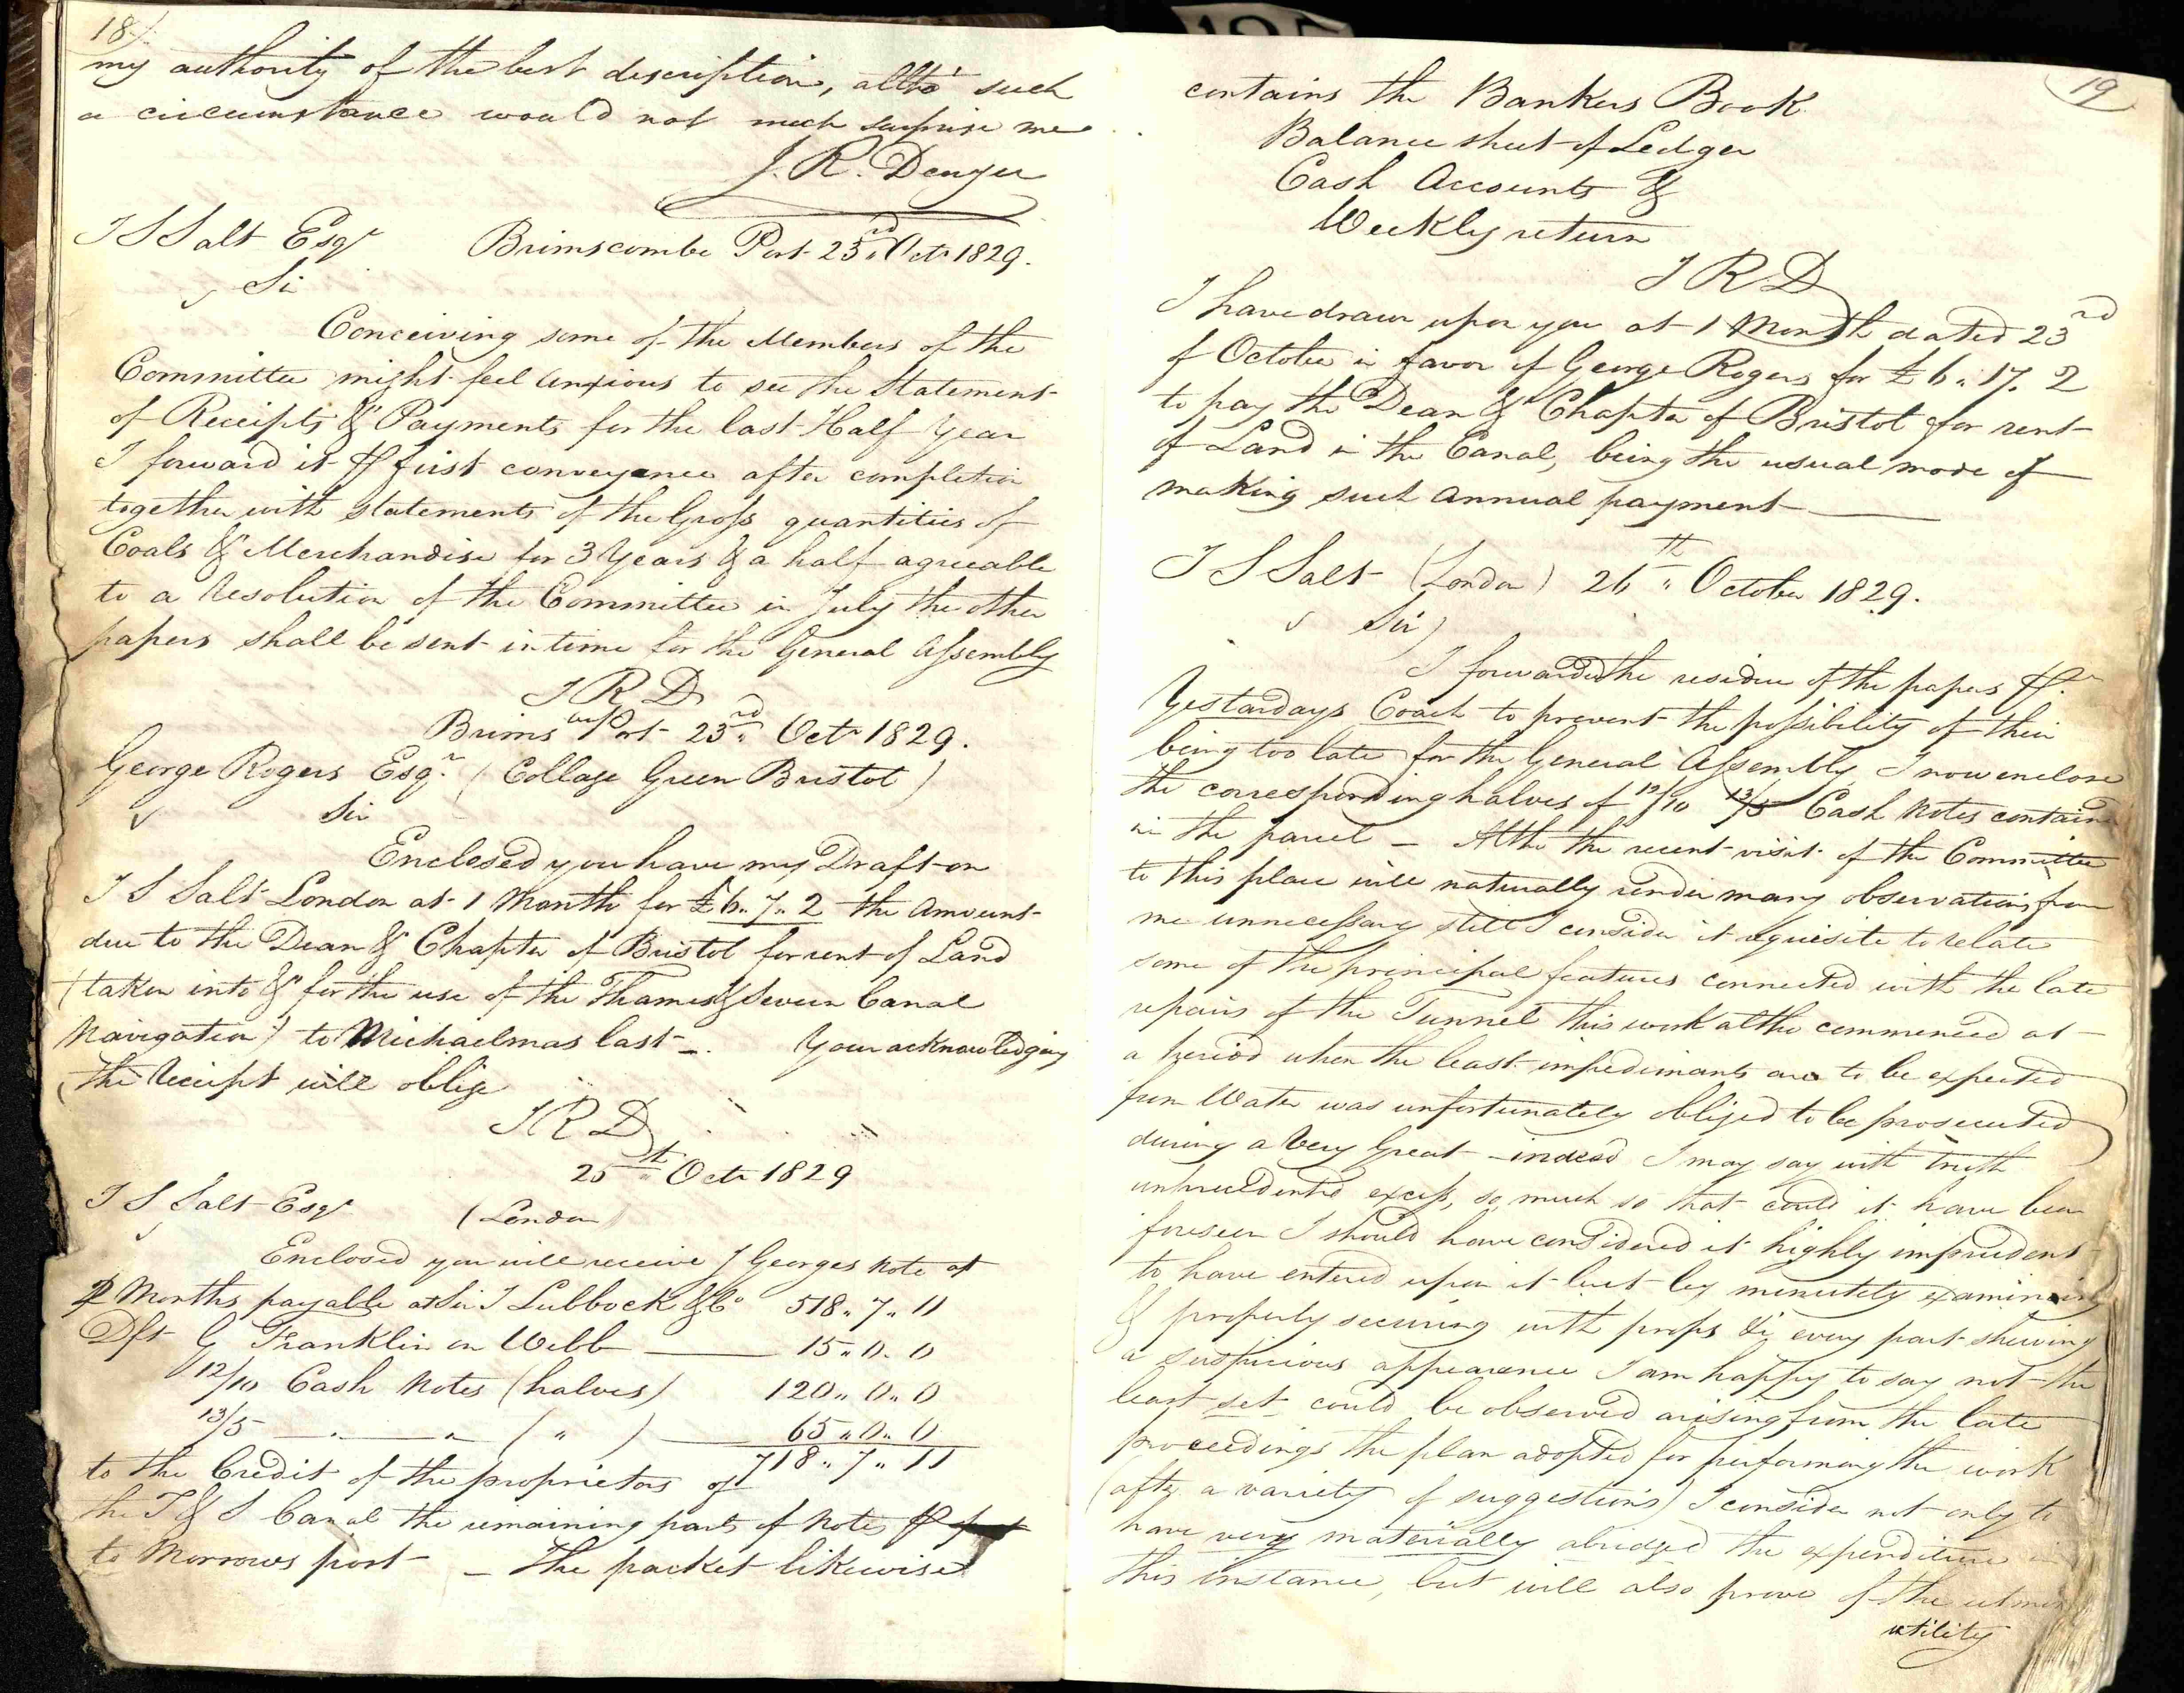 18
my authority of the best description, altho' such
a circumstance would not much surprise me
J. R. Denyer
J S Salt Esqr Brimscombe Port 23rd Octr 1829.
Sir
Conceiving some of the Members of the
Committee might feel anxious to see the Statement
of Receipts & Payments for the last Half Year
I forward it ⅌ first conveyance after completion
together with statements of the Gross quantities of
Coals & Merchandise for 3 Years & a half agreeable
to a Resolution of the Committee in July the other
papers shall be sent in time for the General Assembly
J R D
Brimsm Port 23rd Octr 1829.
George Rogers Esqr. (Collage Green Bristol)
Sir
Enclosed you have my Draft on
J S Salt London at 1 Month for £6.. 7.. 2 the Amount
due to the Dean & Chapter of Bristol for rent of Land
(taken into & for the use of the Thames & Severn Canal
Navigation) to Michaelmas last -. Your acknowledging
the Receipt will oblige
J R D
25th Octr 1829
J S Salt Esqr (London)
Enclosed you will receive J Georges Note at
2 Months payable at Sir J Lubbock & Co 518.. 7.. 11
Dft G Franklin on Webb 15.. 0. 0
12/10 Cash Notes (halves) 120.. 0.. 0
13/5 " ( " ) 65.. 0.. 0
718.. 7.. 11
to the Credit of the proprietors of
the T & S Canal the remaining parts of Notes ⅌
to Morrows post - The packet likewise
19
contains the Bankers Book
Balance sheet of Ledger
Cash Accounts &
Weekly return
J R D
I have drawn upon you at 1 Month dated 23rd
of October in favor of George Rogers for £6.. 17. 2
to pay the Dean & Chapter of Bristol for rent
of Land in the Canal, being the usual mode of
making such annual payment
J S Salt (London) 26th October 1829.
Sir
I forwarded the residue of the papers ⅌
Yestardays Coach to prevent the possibility of their
being too late for the General Assembly I now enclose
the corresponding halves of 12/10 13/5 Cash Notes contain
in the parcel - Altho the recent visit of the Committee
to this place will naturally render many observations from
me unnecessary still I consider it requisite to relate
some of the principal features connected with the late
repairs of the Tunnel this work altho commenced at
a period when the least impediments are to be expected
from Water was unfortunately obliged to be prosecuted
during a Very Great - indeed I may say with truth
unprecedented excess, so much so that could it have been
foreseen I should have considered it highly imprudent
to have entered upon it but by minutely examining
& properly securing with props &c every part shewing
a suspicious appearance I am happy to say not the
least set could be observed arising from the late
proceedings the plan adopted for performing the work
(after a variety of suggestions) I consider not only to
have very materially abridged the expenditure in
this instance, but will also prove of the utmost
utility